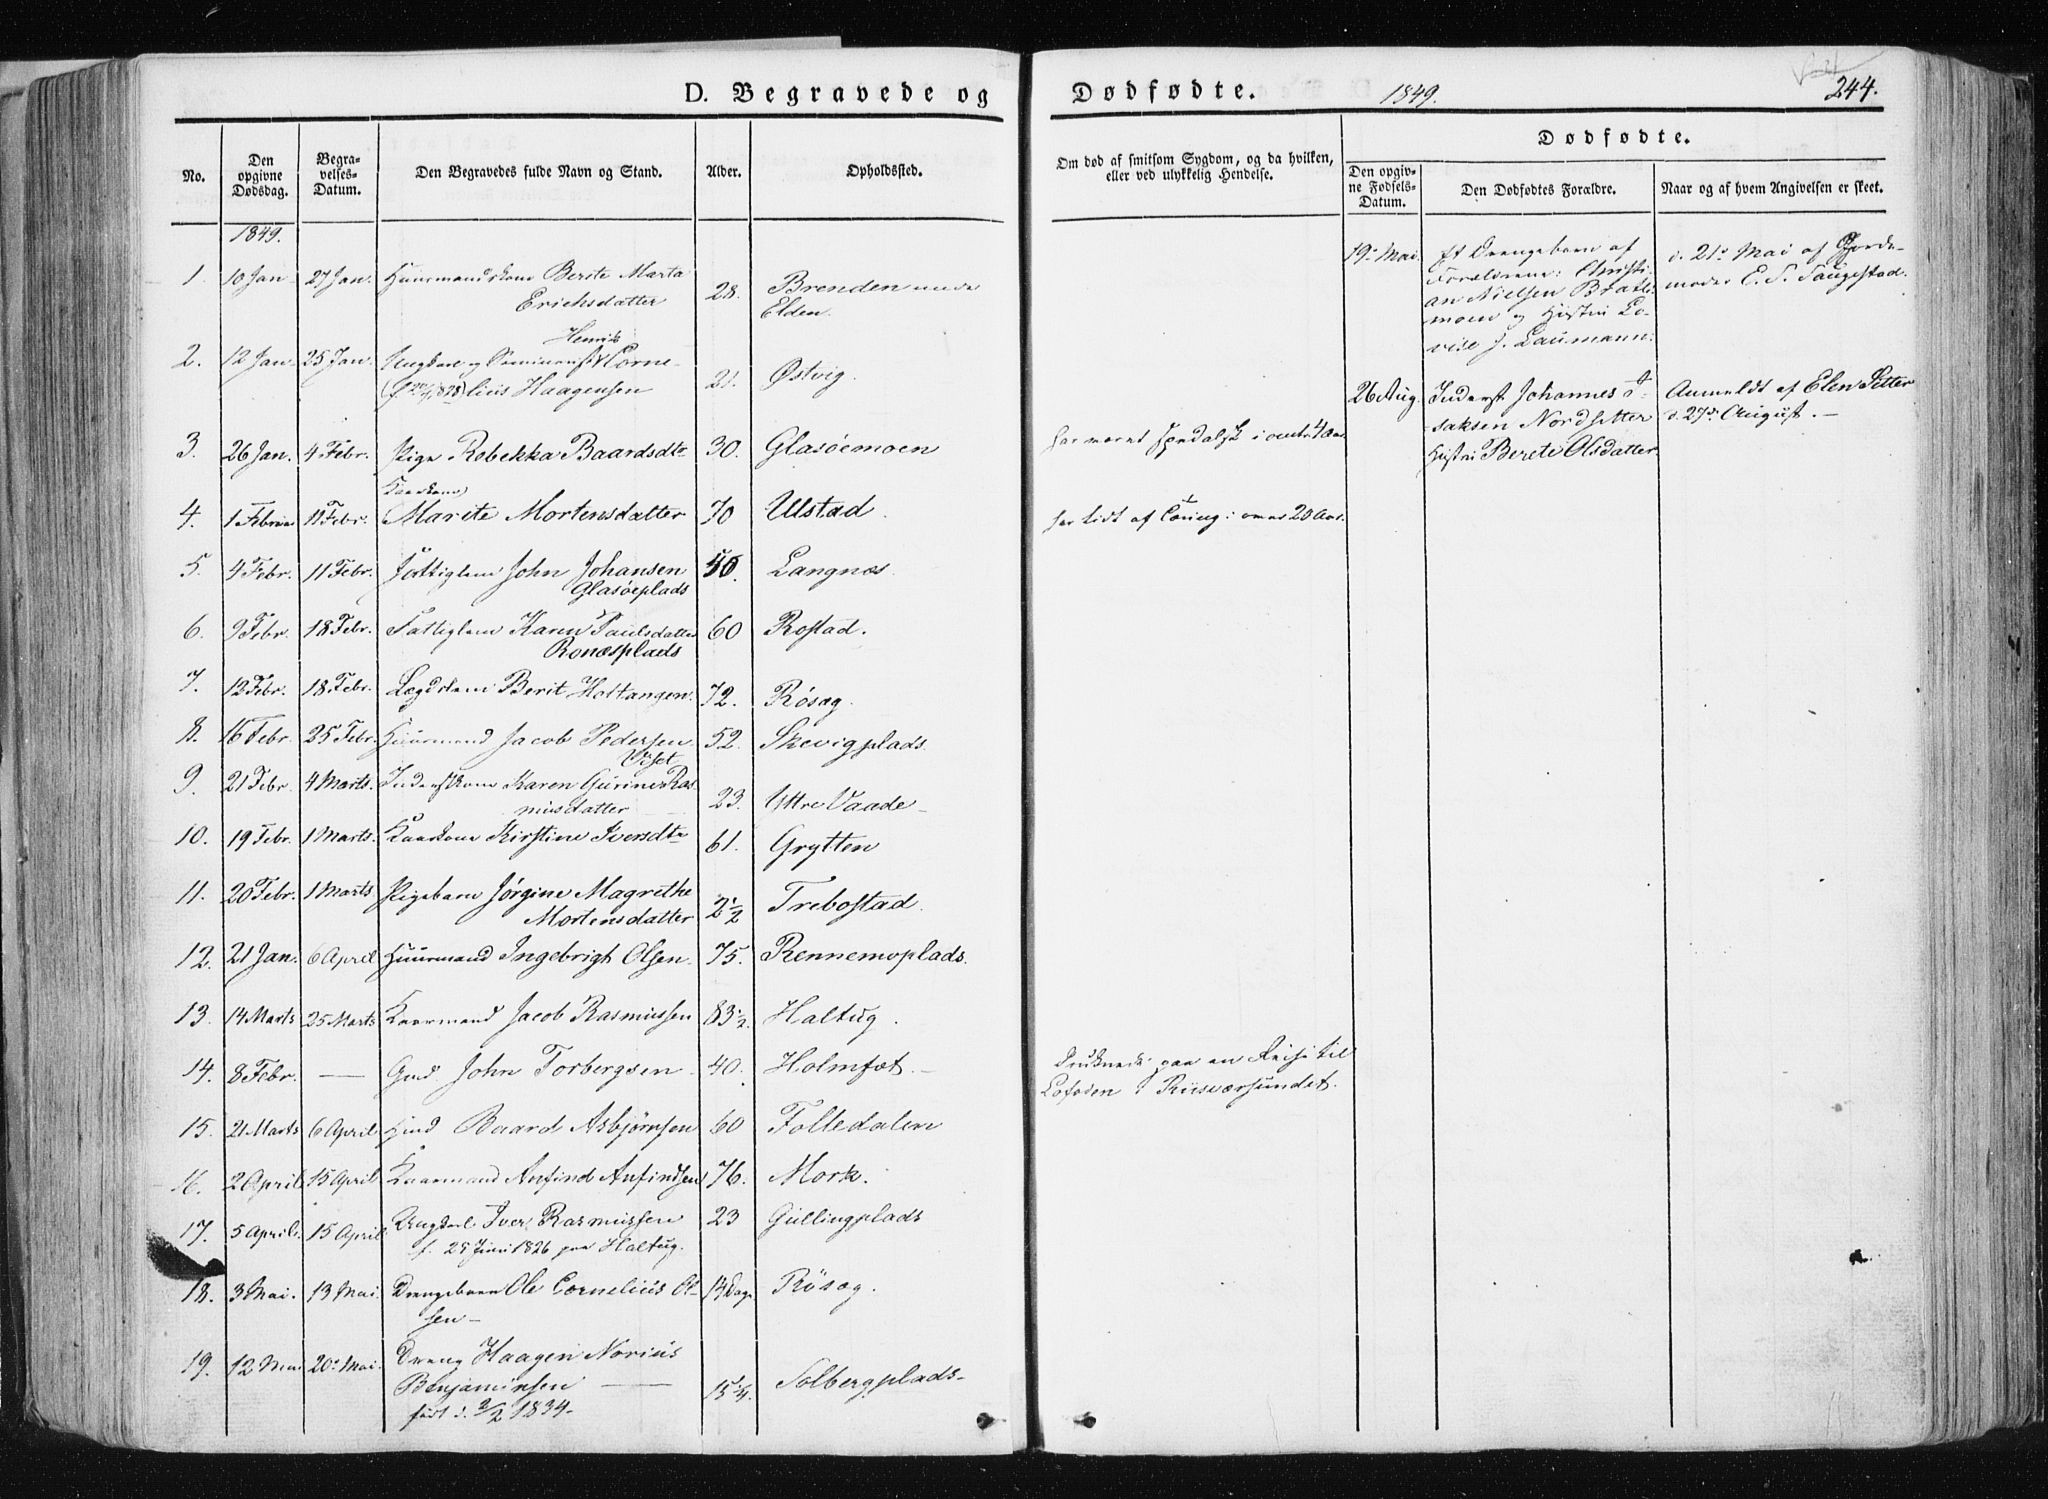 D. Begravede og
No.
Den opgivne Dødsdag.
Begravelses-Datum.
Den Begravedes fulde Navn og Stand.
Alder.
Opholdssted.
1849.
1. 10 Jan 27 Jan. Huusmandskone Berete Marta
Erichsdatter 28. Brenden under
Elden.
Henrik
2. 12 Jan. 25 Jan. Ungkarl og Corne-
lius Haagensen 21. Østvig.
3. 26 Jan. 4 Febr. Pige Rebekka Baardsdtr 30. Glasøemoen
Kaarkone
4. 1 Februar 11 Febr. Marite Mortensdatter 70 Ulstad.
5. 4 Febr. 11 Febr. Fattiglem John Johansen
Glasøeplads 50. Langnæs.
6. 9 Febr. 18 Febr. Fattiglem Karen Paulsdatter 60 Rostad.
Ronæsplads
7. 12 Febr. 18 Febr. Lægdslem Berit Holtangen. 72. Røsæg.
8. 16 Febr. 25 Febr. Huusmand Jacob Pedersen 52. Skevigplads.
9. 21 Febr. 4 Marts. Inderstkone Karen Gurine Ras
musdatter 23. Yttre Vaade
10. 19 Febr. 1 Marts. Kaarkone Kirstine Iversdtr 61. Grytten
11. 20 Febr. 1 Marts Pigebarn Jørgine Magrethe
Mortensdatter 2½ Trebostad.
12. 21 Jan. 6 April Huusmand Ingebrigt Olsen 75. Rennemoplads.
13. 14 Marts 25 Marts Kaarmand Jacob Rasmussen 83½. Haltug.
14. 8 Febr. — Gmd John Torbergsen 40. Holmset.
15. 21 Marts 6 April Hmd Baard Asbjørnsen 60 Folledalen
16. 2 April 15 April Kaarmand Anfind Anfindsen 76. Mork.
17. 5 April 15 April Ungkarl Iver Rasmussen 23 Gullingplads
f. 25 Juni 1826 paa Haltug.
18. 3 Mai. 13 Mai. Drengebarn Ole Cornelius Ol-
sen 14 Dage Røsæg.
19. 12 Mai 20. Mai. Dreng Haagen Norius
Benjaminsen 15¼. Solbergplads
født d. 3/2 1834.
Dødfødte. 1849. 244.
Om død af smitsom Sygdom, og da hvilken,
eller ved ulykkelig Hendelse.
Dødfødte.
Den opgivne Fødsels-Datum.
Den Dødfødtes Forældre.
Naar og af hvem Angivelsen er skeet.
19. Mai. Et Drengebarn af
Forældrene: Christi-
an Nielsen Bratli-
moen og Hustru Lo-
vise J. Laumann.
d. 21. Mai af Jorde-
moder E. S. Saugestad.
26 Aug. Inderst Johannes I-
saksen Nordsetter
Hustru Berete Olsdatter
Anmeldt af Elen Setter
d. 27de August.
har været spedalsk i omtr 4 Aar.
har lidt af over 20 Aar.
Druknede paa en Reise til
Lofoden i Riisværsundet.